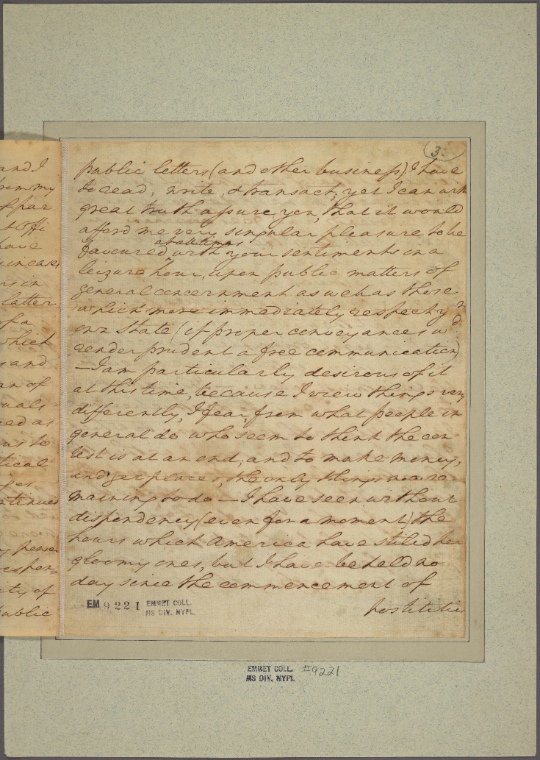 3.
public letters (and other business) I have
to read, write & transact; yet I can with
great truth assure you, that it would
afford me very singular pleasure to be
at all times
favoured with your sentiments in a
leizure hour, upon public matters of
general concernment as well as those
which more immediately respect y
own State (if proper conveyances w
render prudent a free communication)
—I am particularly desirous of it
at this time, because I view things very
differently, I fear, from what people in
general do who seem to think the con
test is at an end, and to make money,
and get places, the only things now re
maining to do — I have seen without
dispondency (even for a moment) the
hours which America have stiled her
gloomy ones, but I have beheld no
day since the commencement of
hostilitie
and I
have
latter
which
and
an of
ed as
tical
ety of
public
EM 9221 EMMET COLL.
MS DIV. NYPL
EMMET COLL. #9221
MS DIV. NYPL